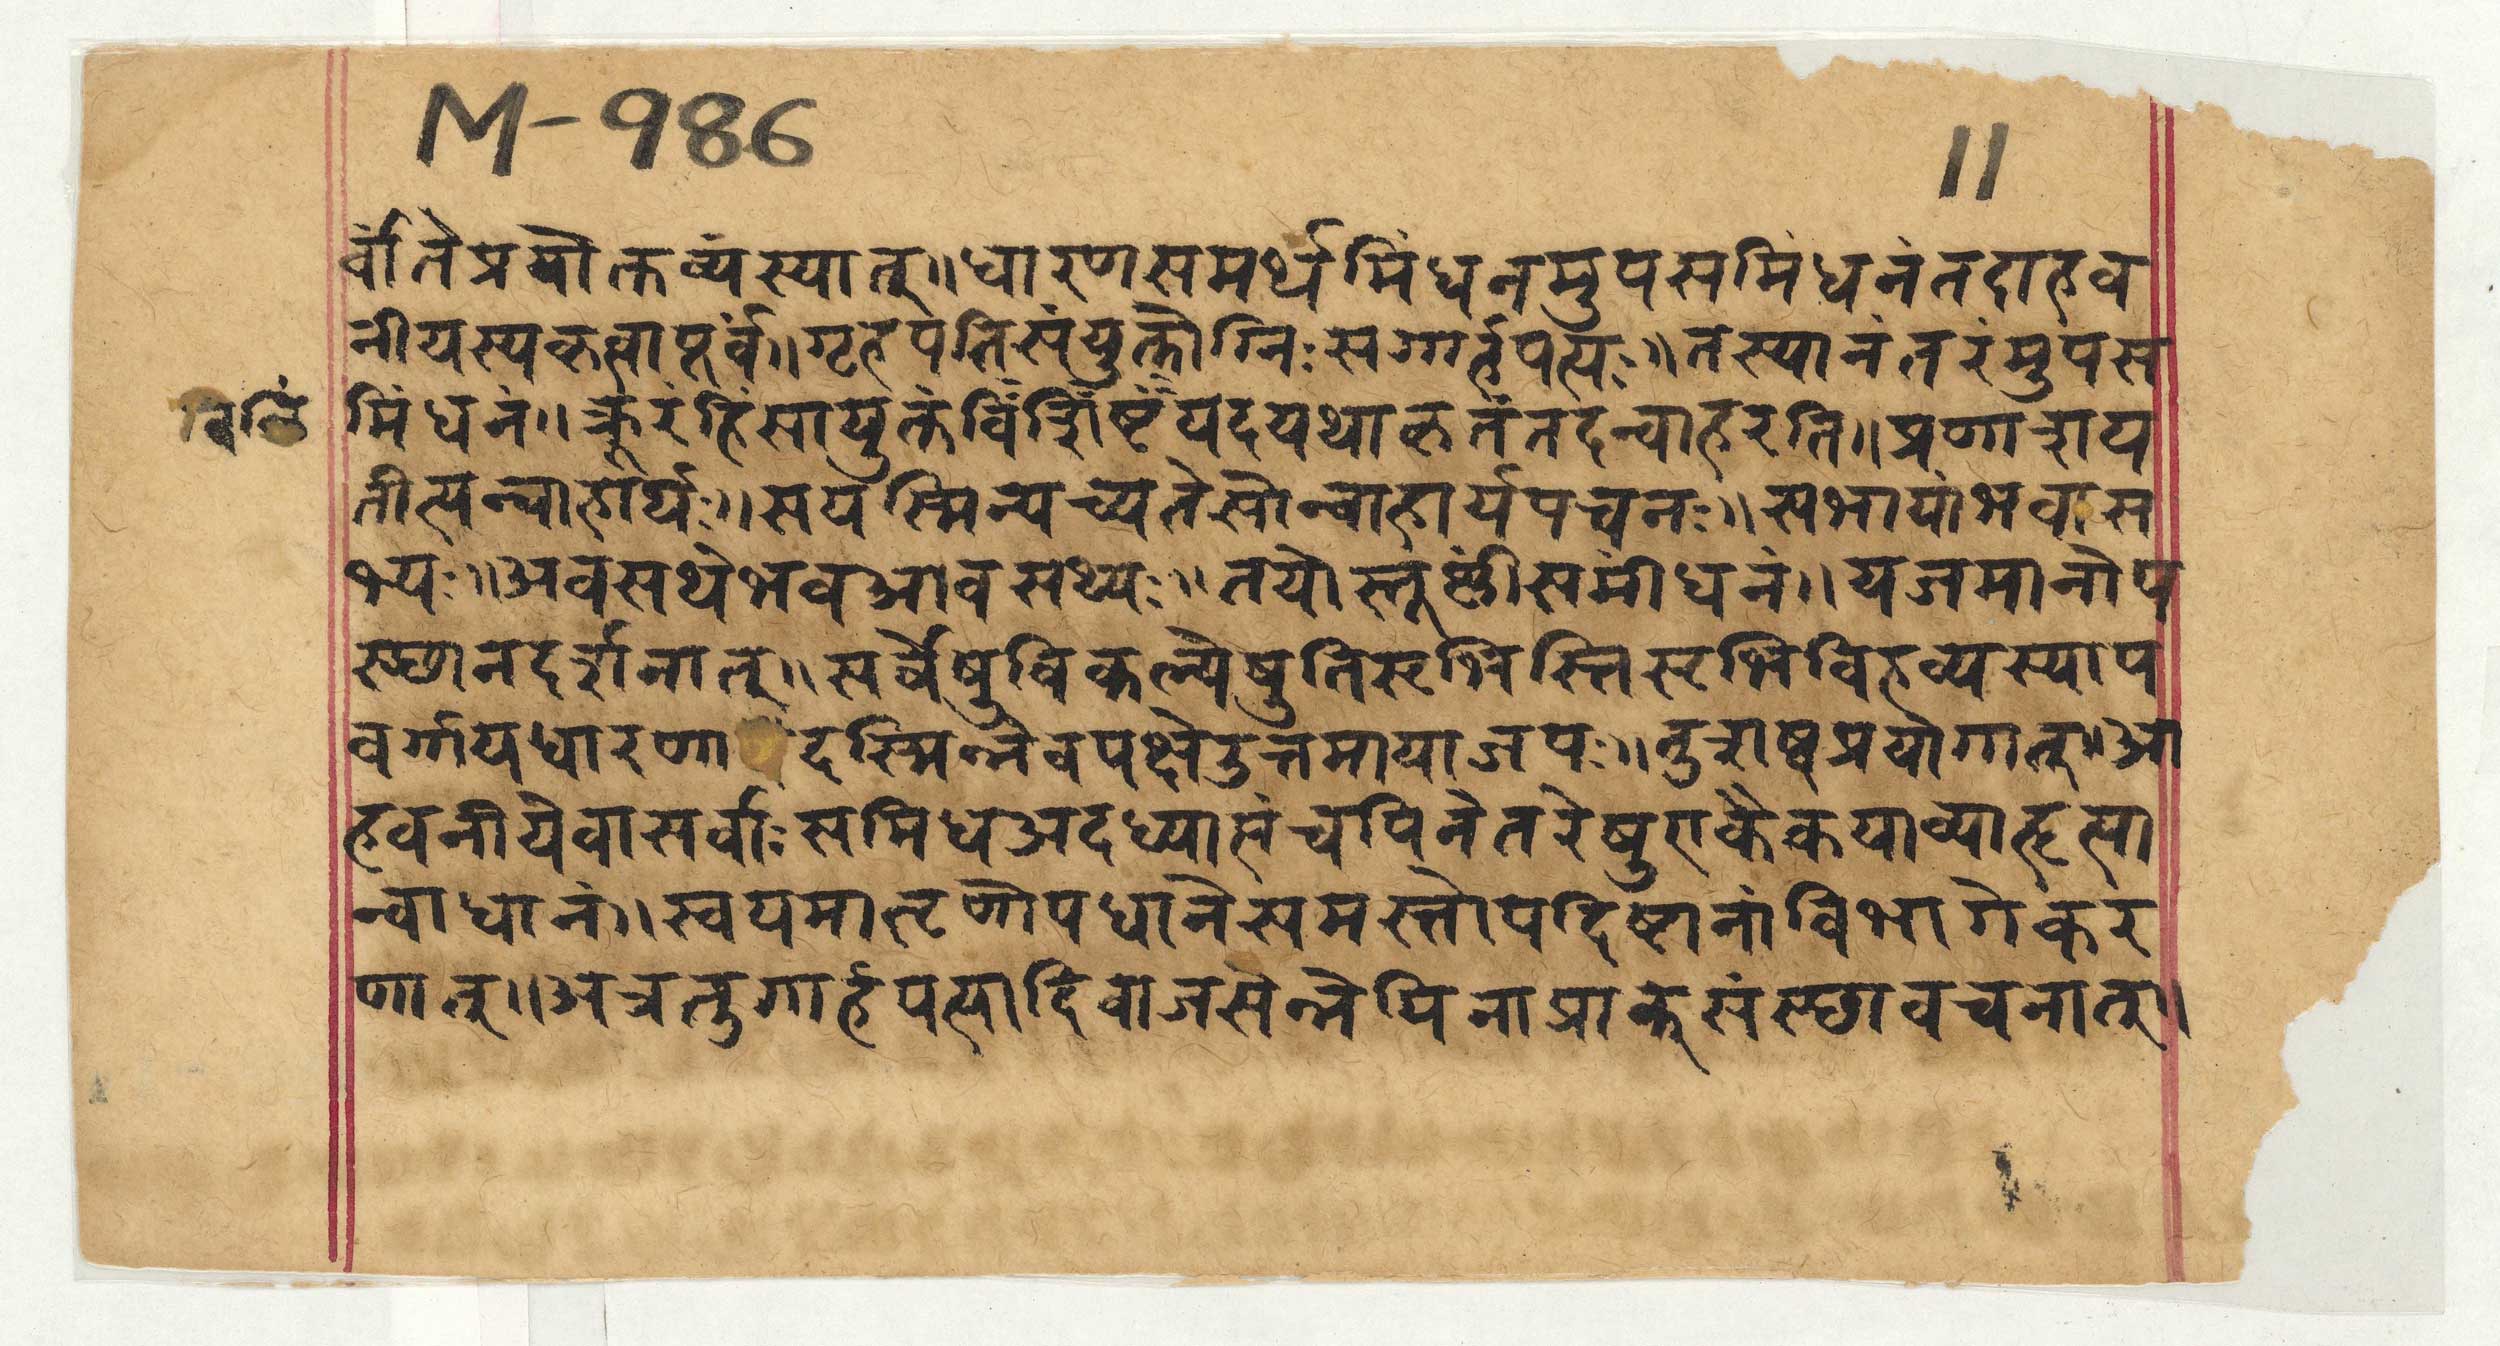 M-986
11
र्वांतेप्रयोक्तव्यंस्यात्॥धारणसमर्थमिंधनमुपसमिंधनंतदाहव
नीयस्यकृत्वापूर्वं॥गृहपतिसंयुक्तोग्निःसगार्हपत्यः॥तस्यानंतरंमुपस
मिंधनं॥क्रूरंहिंसायुक्तंविंशिष्टंयदयथाकृतंतदन्वाहरति॥प्रणाशय
तीत्यन्वाहार्यः॥सयस्मिन्पच्यतेसोन्वाहार्यपचनः॥सभायांभवःस
भ्यः॥अवसथेभवआवसथ्यः॥तयोस्तूष्णींसमींधनं॥यजमानोप
स्छानदर्शनात्॥सर्वेषुविकल्पेषुतिसृभिस्तिसृभिविहव्यस्याप
वर्गायधारणा दस्मिन्नेवपक्षेउत्तमायाजपः॥तुशब्दप्रयोगात्॥आ
हवनीयेवासर्वाःसमिधअदध्यात्संचपिनेतरेषुएकैकयाव्याहृत्या
न्वाधानं॥स्वयमातृणोपधानेसमस्तोपदिष्टानांविभागेकर
णात्॥अत्रतुगार्हपत्यादिवाजसेन्नेयिनाप्राक्संस्छावचनात्॥